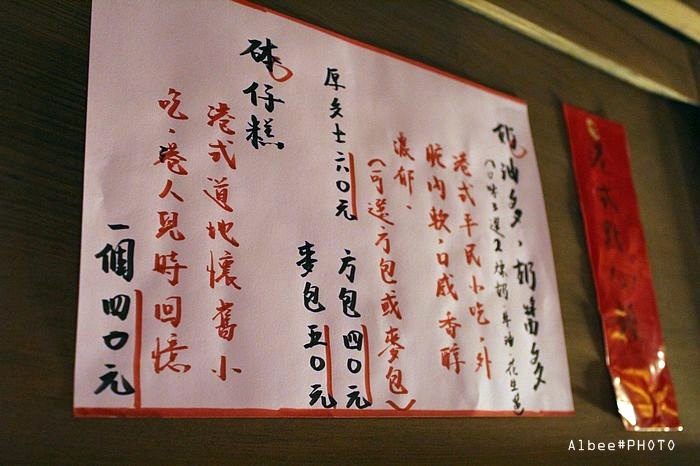 奶油多，奶醬多
(口味三選二 煉奶、牛油、花生醬)
港式平民小吃，外
脆內軟，口感香醇
濃郁。
(可選方包或麥包)
方包四〇元
麥包五〇元
厚多士六〇元
砵仔糕
港式道地懷舊小
吃，港人兒時回憶
一個四〇元
港式
Albee#PHOTO